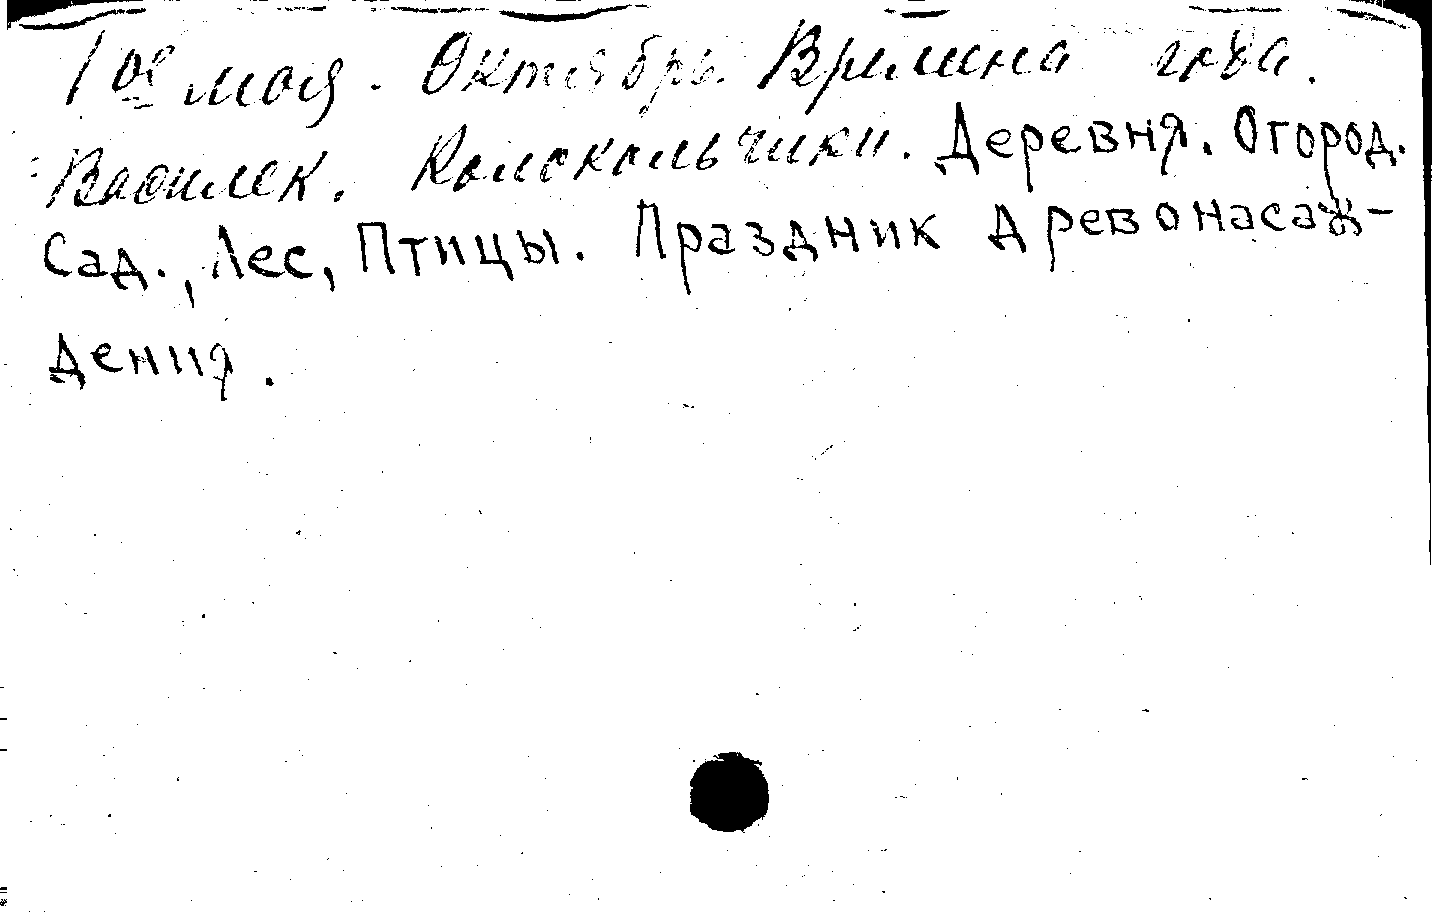 1ое мая. Октябрь. Времена года.
Василек. Колокольчики. Деревня. Огород.
Сад., Лес, Птицы. Праздник древонасаж-
дения.